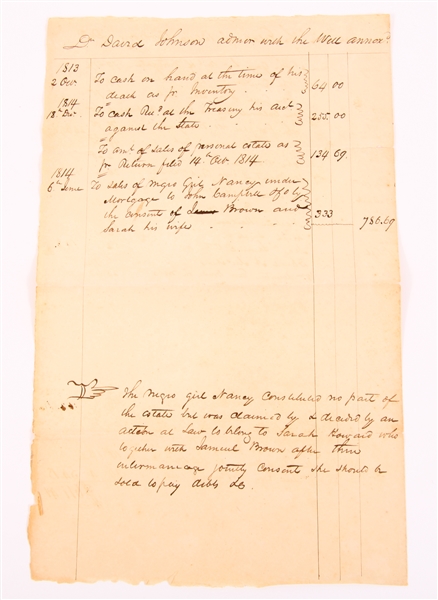 Dr David Johnson admor with the Will annexd
1813
2 Nov To cash on hand at the time of his
death as pr Inventory 64 00
1814
18th Decr To cash Recd at the Treasury his acct
against the State 255.00
To amt of sales of personal estate as
pr Return filed 14th Oct 1814 134 69
1814
6th June To sales of negro Girl Nancy under
Mortgage to John Campbell &c by
the consent of Brown and 333
Sarah his wife 786.69
The Negro girl Nancy constituted no part of
the estate but was claimed by & decided by an
action at Law to belong to Sarah Howard who
together with Samuel Brown after their
intermarriage jointly consent she should be
sold to pay debts &c.